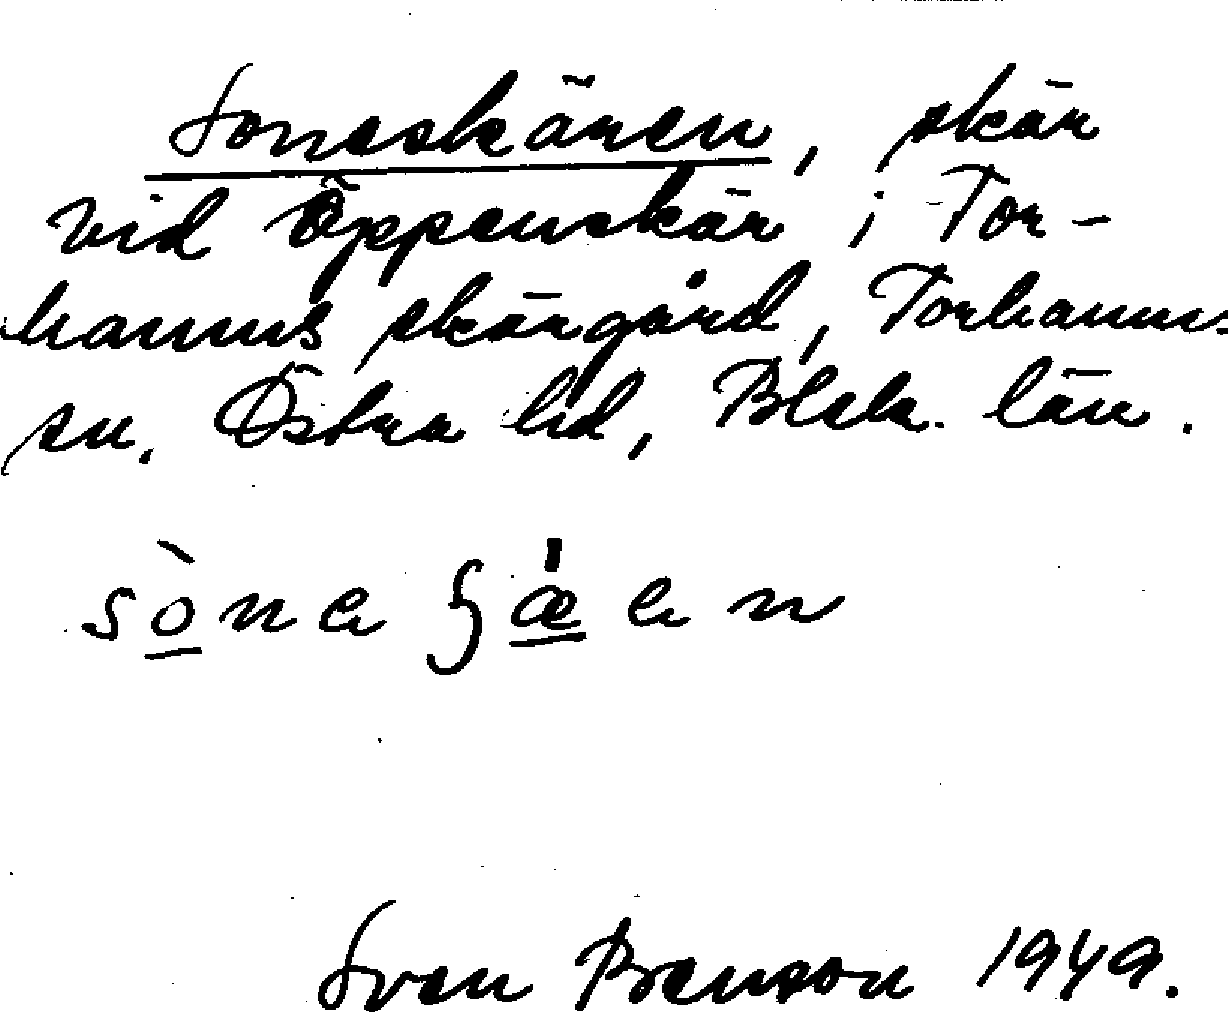 Soneskären, skär
vid Öppenskär i Tor-
hamns skärgård, Torhamns
sn. Östra hd, Blek. län.
sòneʃæ̍en
Sven Benson 1949.